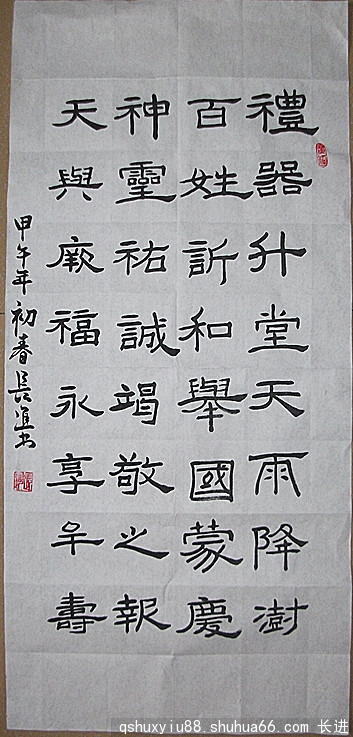 禮器升堂天雨降澍
百姓訢和舉國蒙慶
神靈祐誠竭敬之報
天與厥福永享牟壽
甲午年初春長進书
qshuxyiu88.shuhua66.com 长进